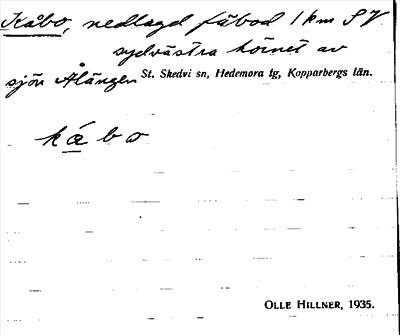 Kåbo, nedlagd fäbod 1 km SV
sydvästra hörnet av
sjön Ålängen St. Skedvi sn, Hedemora tg, Kopparbergs län.
kábo
OLLE HILLNER, 1935.